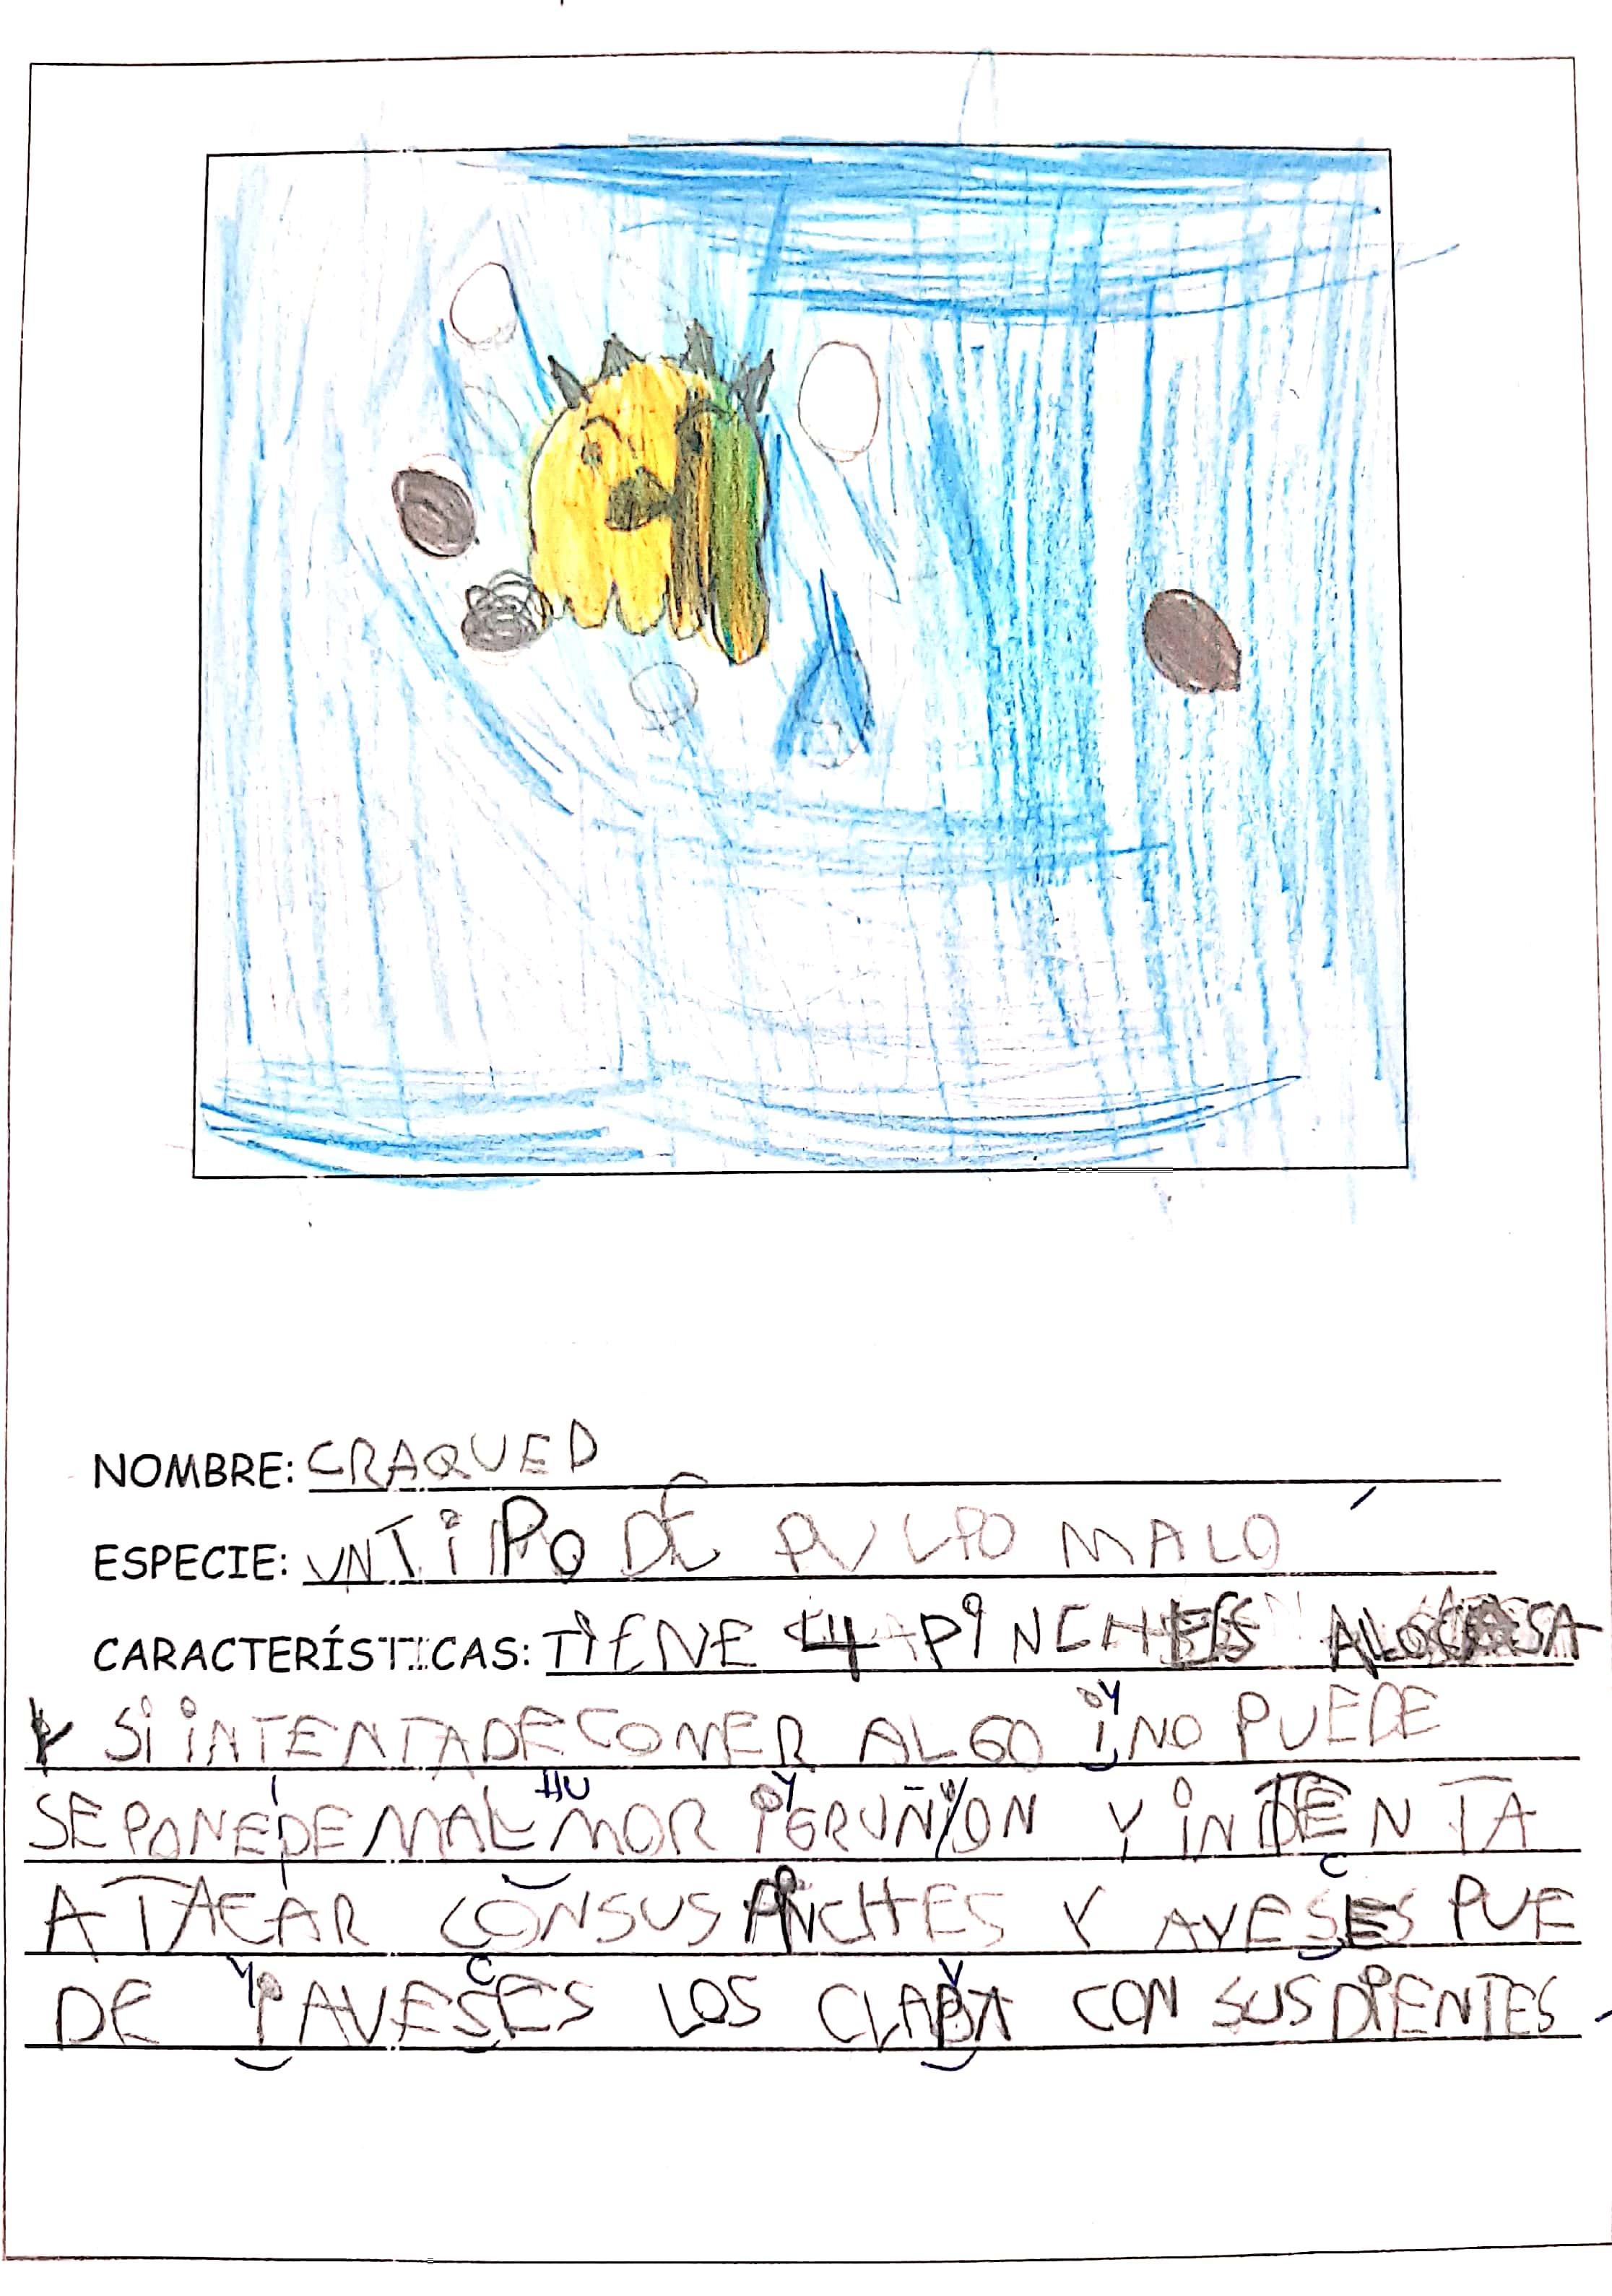 NOMBRE: CRAQUED
ESPECIE: UN TIPO DE PULPO MALO
CARACTERÍSTICAS: TIENE 4 PINCHES A LOS
Y SI INTENTA DE COMER ALGO I NO PUEDE
SE PONE DE MAL MOR I GRUÑON Y INTENTA
ATACAR CON SUS PINCHES Y AVESES PUE
DE I AVESES LOS CLABA CON SUS DIENTES